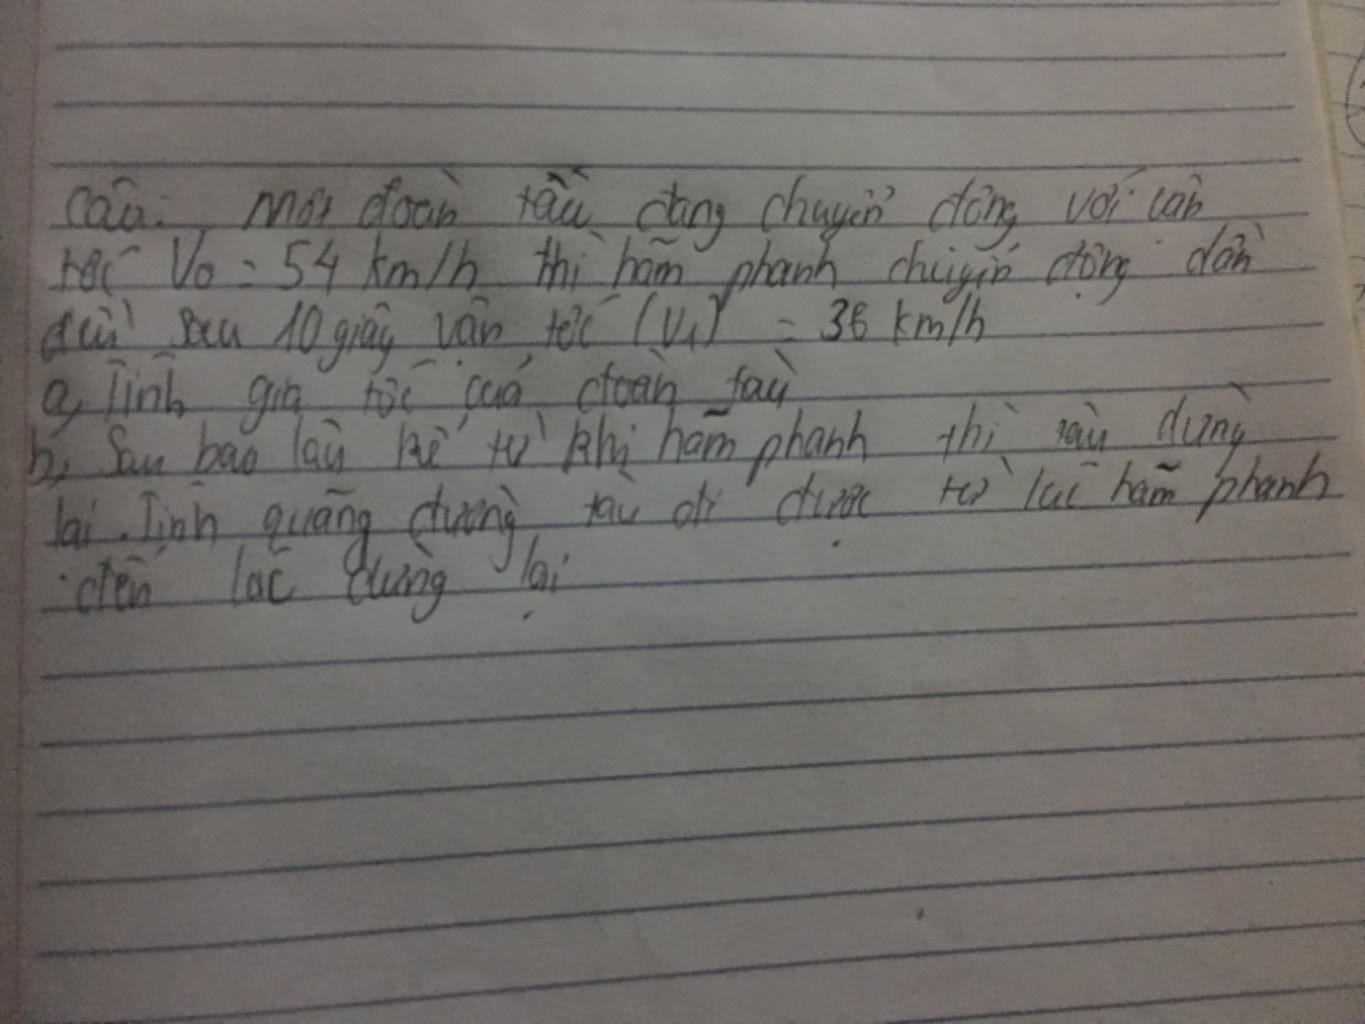 Câu: Một đoàn tàu đang chuyển động với vận
tốc V₀ = 54 km/h thì hãm phanh chuyển động dần
đều sau 10 giây vận tốc (V₁) = 36 km/h
a, Tính gia tốc của đoàn tàu
b, Sau bao lâu kể từ khi hãm phanh thì tàu dừng
lại. Tính quãng đường tàu đi được từ lúc hãm phanh
đến lúc dừng lại